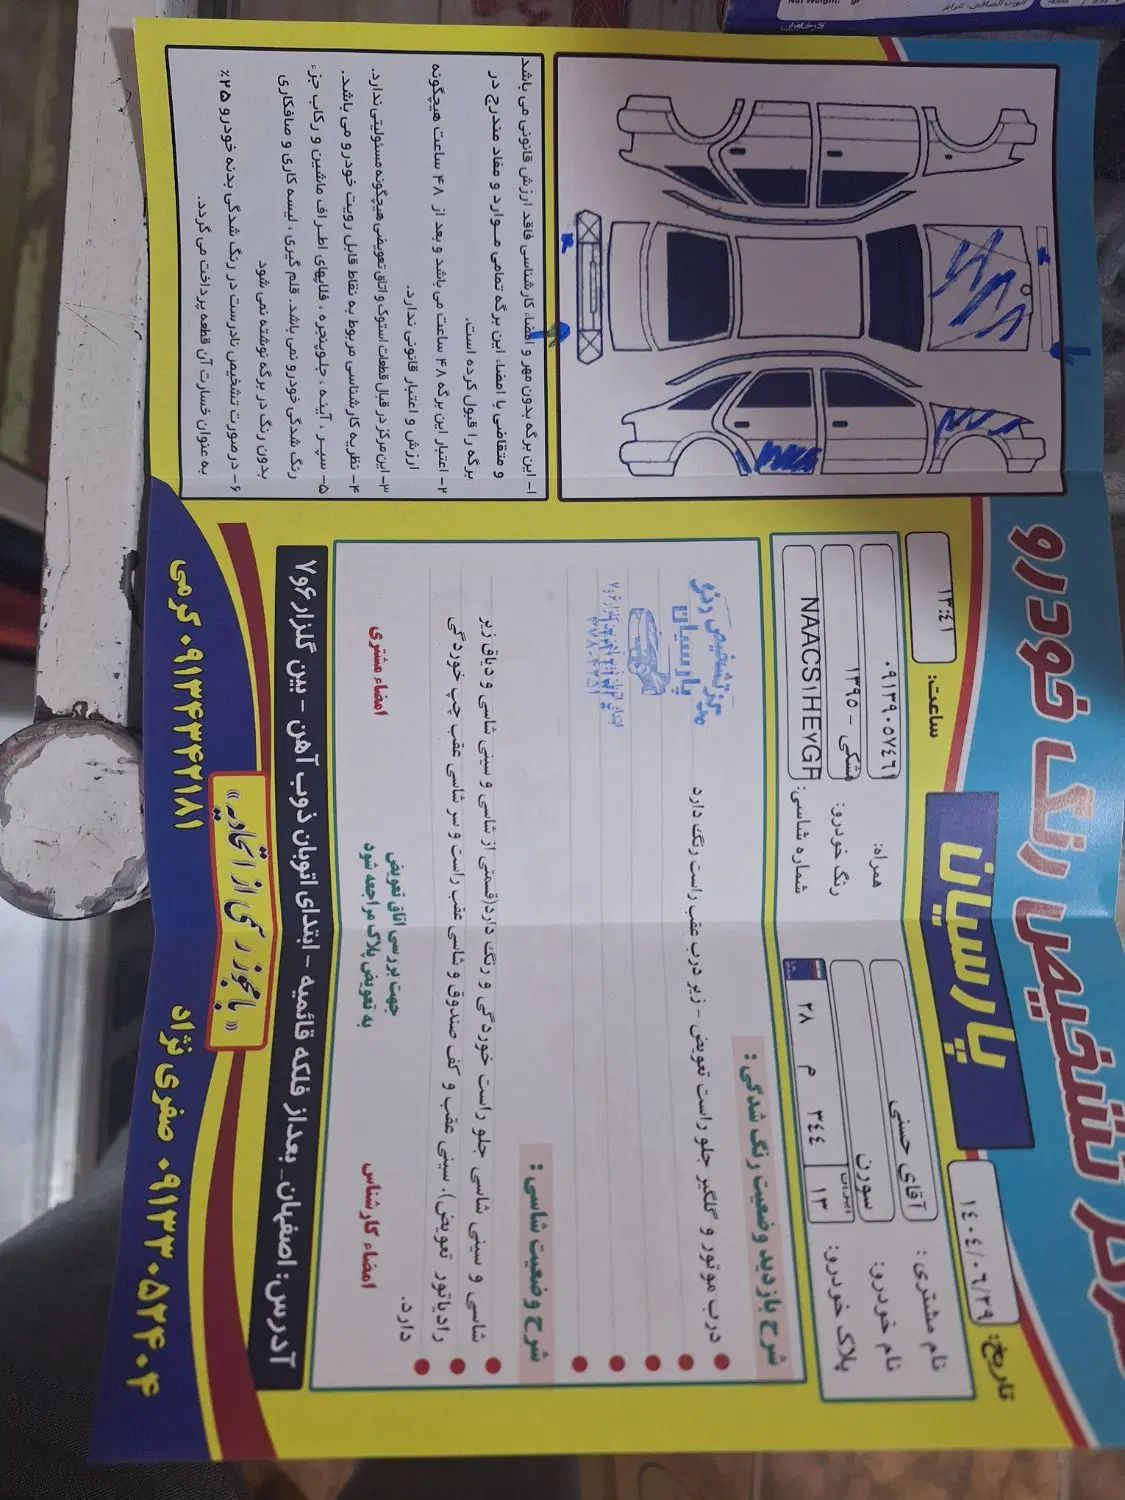 مرکز تشخیص رنگ خودرو
پارسیان
تاریخ: ١٤٠٤/٠٦/٢٩
ساعت: ١٣:٤١
نام مشتری: آقای حسنی
همراه: ٠٩١٣٩٠٥٧٤٦١
نام خودرو: سورن
رنگ خودرو: مشکی - ١٣٩٥
پلاک خودرو: ایران ١٣ ٣٤٤ م ٢٨
شماره شاسی: NAACS١HE٧GF
شرح بازدید وضعیت رنگ شدگی:
درب موتور و گلگیر جلو راست تعویض - زیر درب عقب راست رنگ دارد
مرکز تشخیص رنگ
پارسیان
شرح وضعیت شاسی:
شاسی و سینی شاسی جلو راست خوردگی و رنگ دارد(قسمتی از شاسی و سینی شاسی و دیاق زیر
رادیاتور تعویض). سینی عقب و کف صندوق و شاسی عقب راست و سر شاسی عقب چپ خوردگی
دارد.
امضاء کارشناس
جهت بررسی اتاق تعویض
به تعویض پلاک مراجعه شود
امضاء مشتری
آدرس: اصفهان_ بعد از فلکه قائمیه - ابتدای اتوبان ذوب آهن - بین گلزار ۶و۷
« با مجوز رسمی از اتحادیه »
۰۹۱۳۳۰۵۲۴۰۴ صفری نژاد
۰۹۱۳۴۳۴۲۱۸۱ کرمی
۱- این برگه بدون مهر و امضاء کارشناسی فاقد ارزش قانونی می باشد
و متقاضی با امضاء این برگه تمامی موارد و مفاد مندرج در
برگه را قبول کرده است.
۲- اعتبار این برگه ۴۸ ساعت می باشد و بعد از ۴۸ ساعت هیچگونه
ارزش و اعتبار قانونی ندارد.
۳- این مرکز در قبال قطعات استوک و اتاق تعویضی هیچگونه مسئولیتی ندارد.
۴- نظریه کارشناسی مربوط به نقاط قابل رویت خودرو می باشد.
۵- سپر ، آینه ، جلوپنجره ، فلاپهای اطراف ماشین و رکاب جزء
رنگ شدگی خودرو نمی باشد. قلم گیری ، لیسه کاری و صافکاری
بدون رنگ در برگه نوشته نمی شود
۶- در صورت تشخیص نادرست در رنگ شدگی بدنه خودرو ۲۵٪
به عنوان خسارت آن قطعه پرداخت می گردد.